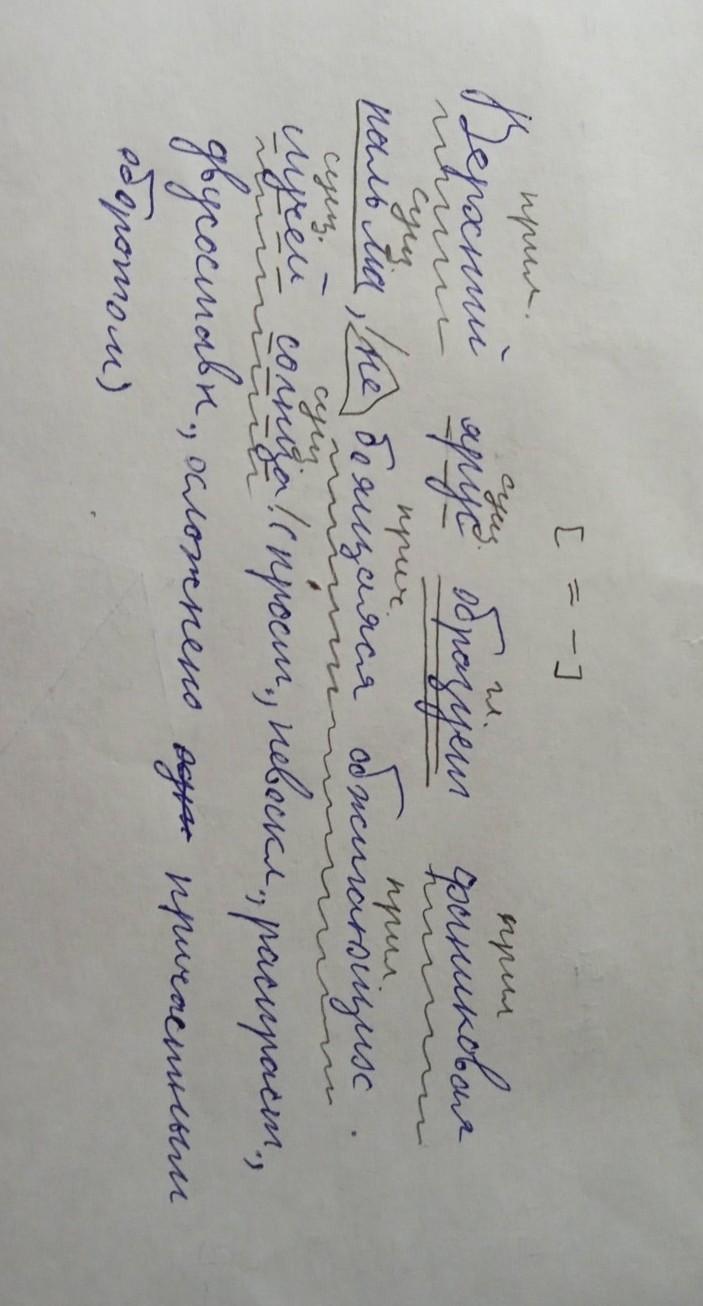 [ = – ]
прил. сущ. гл. прил
Верхний ярус образует финиковая
сущ. прич. прил.
пальма, не боящаяся обжигающих
сущ. сущ.
лучей солнца! (прост., невоскл., распрост.,
двусоставн., осложнено причастным
оборотом)